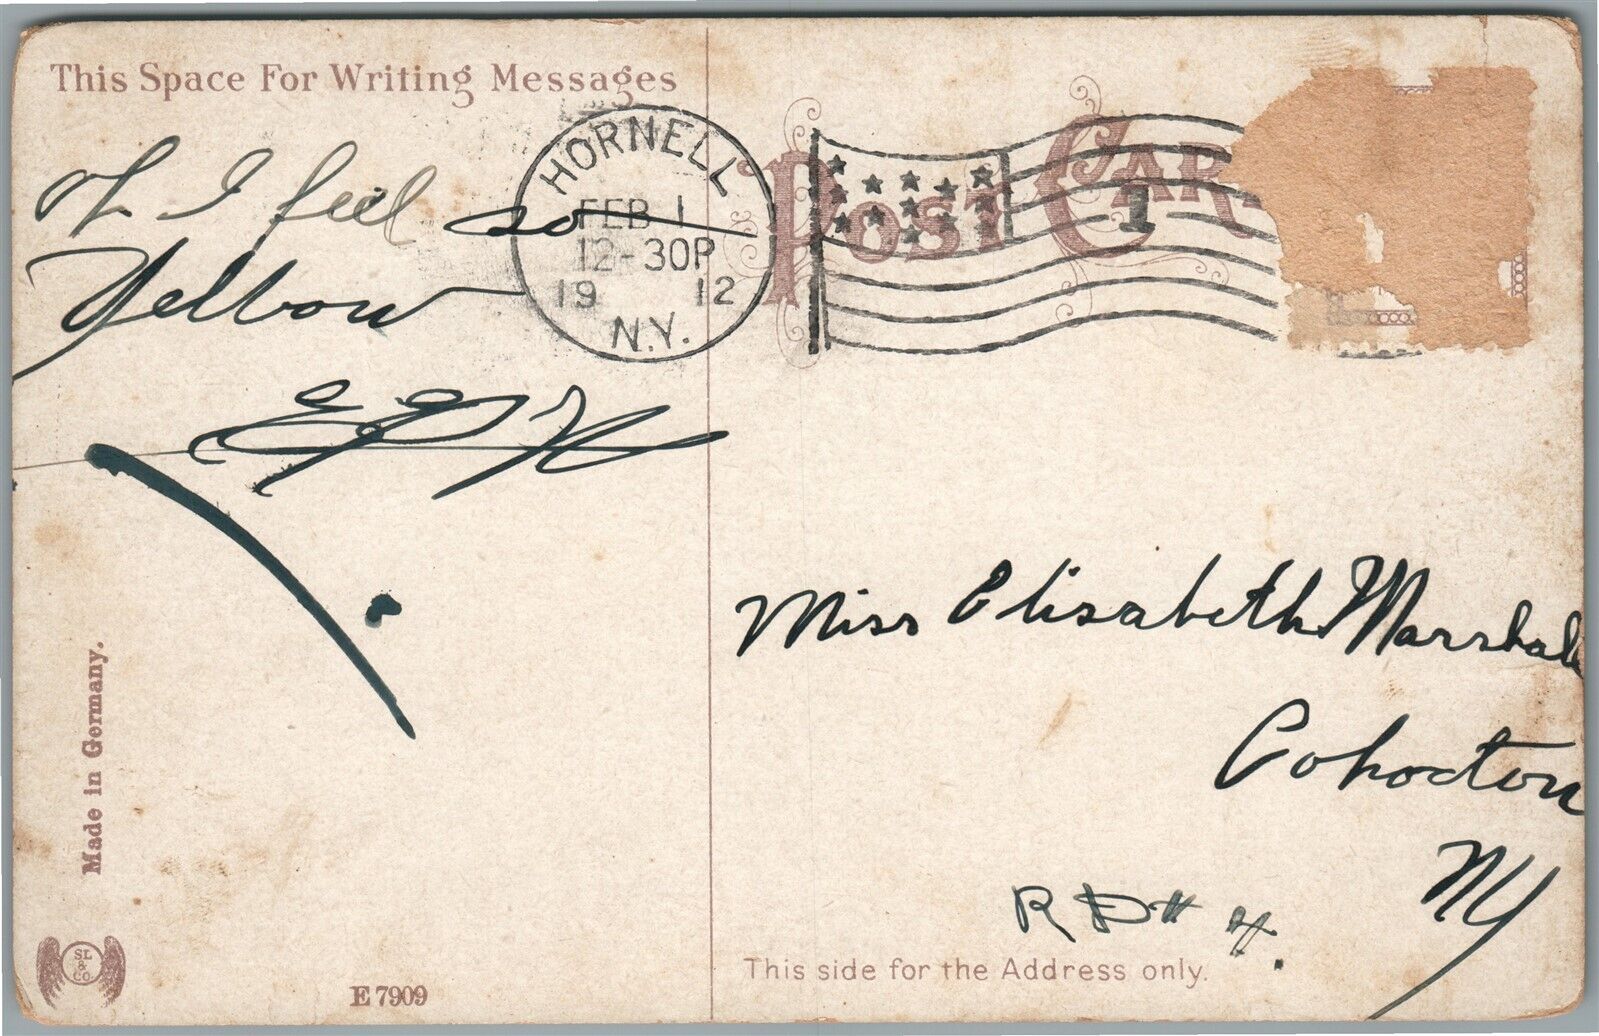 This Space For Writing Messages
POST CAR
HORNELL
FEB 1
12-30P
19 12
N.Y.
1
Oh I feel so
Yellow
Miss Elisabeth Marshall
Cohocton
NY
R D # 4.
This side for the Address only.
Made in Germany.
SL
&
CO.
E 7909